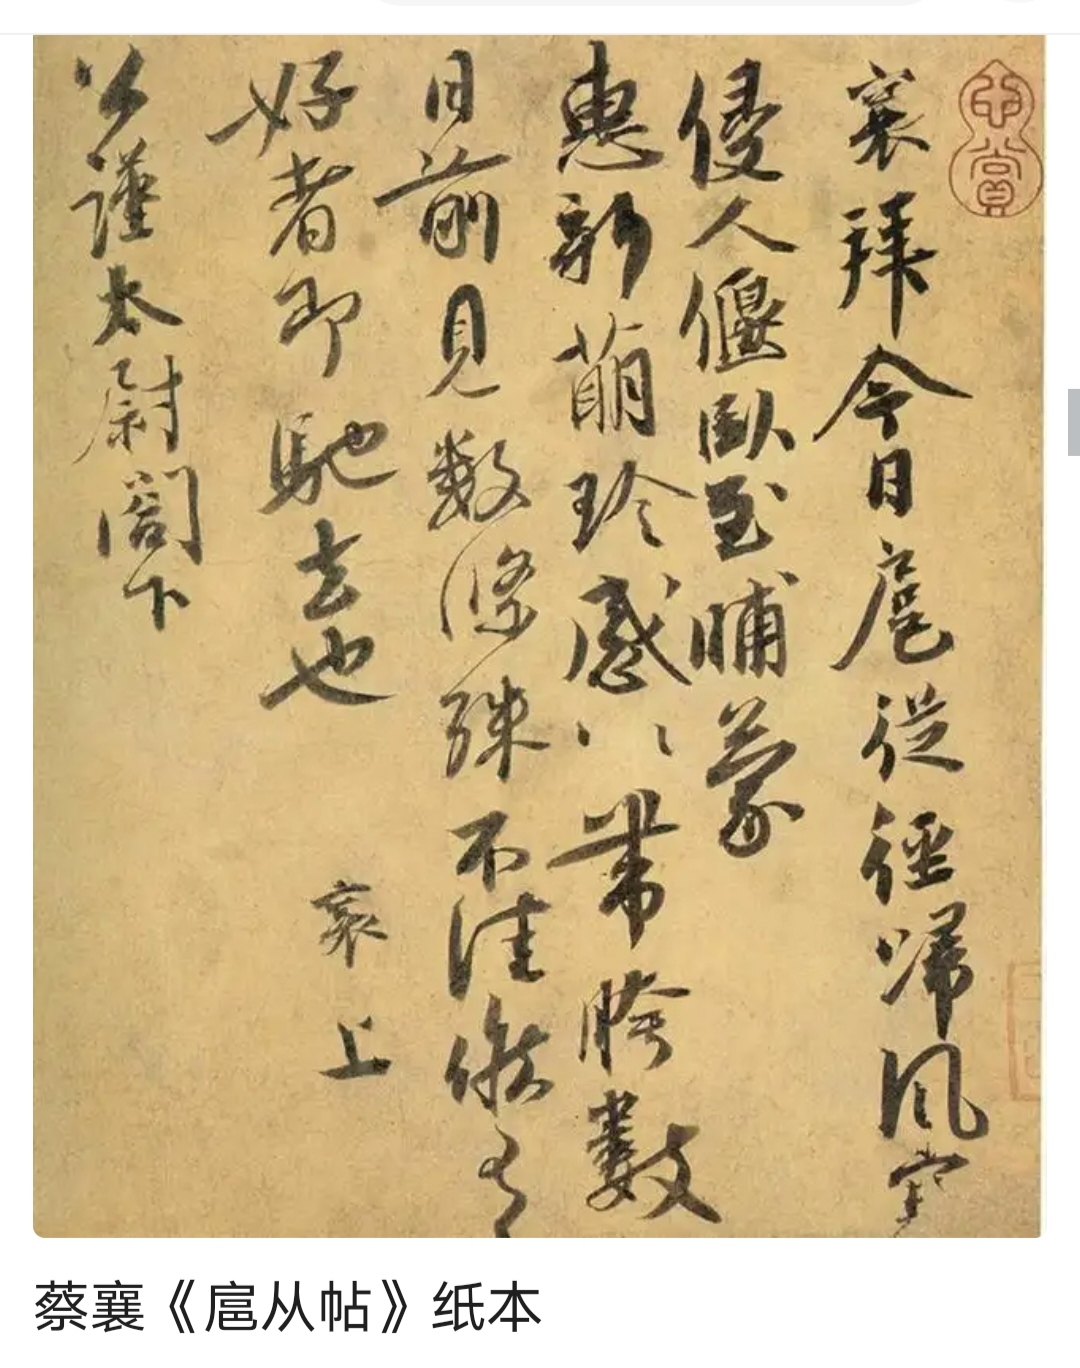 襄拜今日扈從徑歸風寒
侵人偃臥至晡蒙
惠新萠珍感〻帶胯數
日前見數條殊不佳候有
好者即馳去也
襄上
公謹太尉閤下
蔡襄《扈从帖》纸本